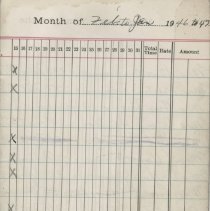 Month of Feb to Jan 1946 to 47
15 16 17 18 19 20 21 22 23 24 25 26 27 28 29 30 31 Total Time Rate Amount
X
X
X
X
X
X